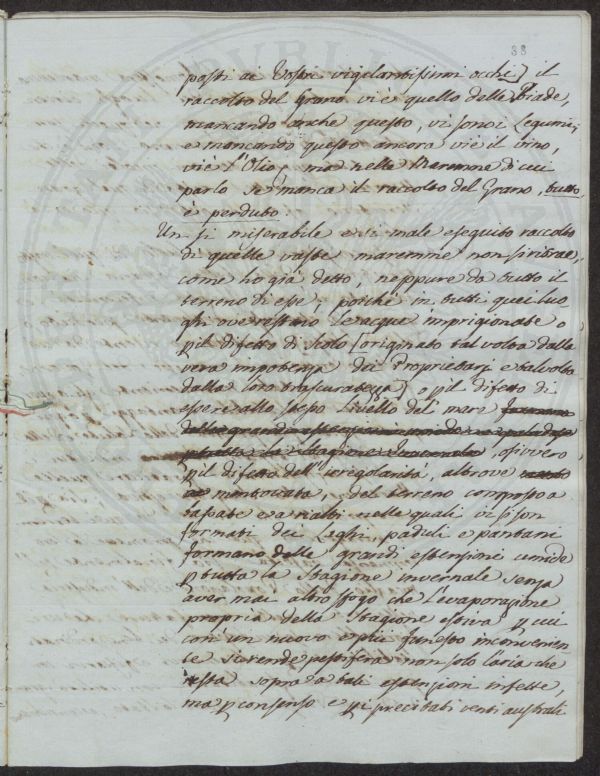 88
posti ai Vostri vigilantissimi occhi) il
raccolto del Grano vi è quello delle Biade,
mancando anche questo, vi sono i Legumi,
e mancando questo ancora vi è il vino,
vi è l'Olio; ma nelle Maremme di cui
parlo se manca il raccolto del Grano, tutto
è perduto.
Un sì miserabile e sì male eseguito raccolto
di quelle vaste maremme non si ritrae,
come ho già detto, neppure da tutto il
terreno di esse, poichè in tutti quei luo
ghi ove restano le acque imprigionate o
pil difetto di scolo (originato tal volta dalla
vera impotenza dei Proprietarj e talvolta
dalla loro trascuratezza) o pil difetto di
essere allo stesso livello del mare formano
delle grandi estensioni umide
p tutta la stagione invernale, ovvero
pil difetto dell'irregolarità, altrove
mentovata, del terreno composto a
sapate e a rialti nelle quali vi si son
formati dei Laghi, paduli e pantani
formano delle grandi estensioni umide
p tutta la stagione invernale senza
aver mai altro sfogo che l'evaporazione
propria della stagione estiva p cui
con un nuovo e più funesto inconvenien
te si rende pestifera non solo l'aria che
resta sopra a tali estensioni infette,
ma p consenso e pi precitati venti australi